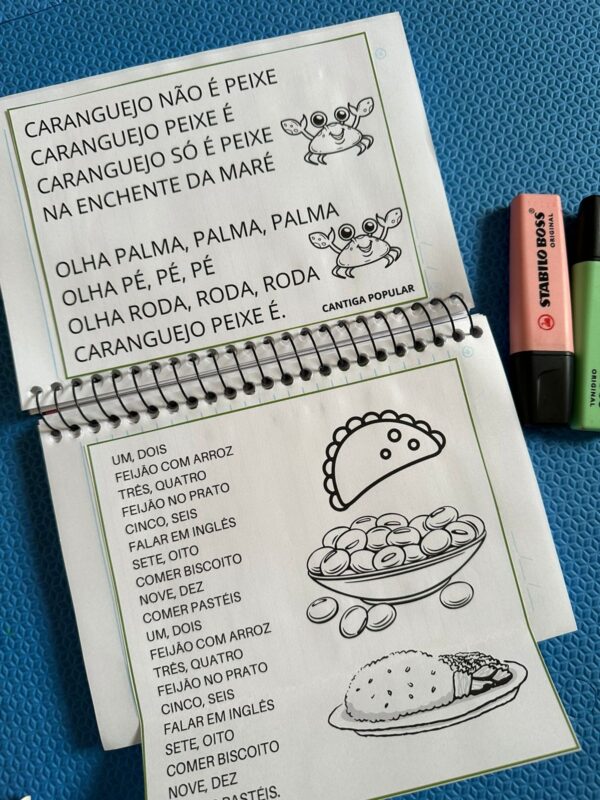 CARANGUEJO NÃO É PEIXE
CARANGUEJO PEIXE É
CARANGUEJO SÓ É PEIXE
NA ENCHENTE DA MARÉ
OLHA PALMA, PALMA, PALMA
OLHA PÉ, PÉ, PÉ
OLHA RODA, RODA, RODA
CARANGUEJO PEIXE É.
CANTIGA POPULAR
UM, DOIS
FEIJÃO COM ARROZ
TRÊS, QUATRO
FEIJÃO NO PRATO
CINCO, SEIS
FALAR EM INGLÊS
SETE, OITO
COMER BISCOITO
NOVE, DEZ
COMER PASTÉIS
UM, DOIS
FEIJÃO COM ARROZ
TRÊS, QUATRO
FEIJÃO NO PRATO
CINCO, SEIS
FALAR EM INGLÊS
SETE, OITO
COMER BISCOITO
NOVE, DEZ
PASTÉIS.
STABILO BOSS
ORIGINAL
ORIGINAL